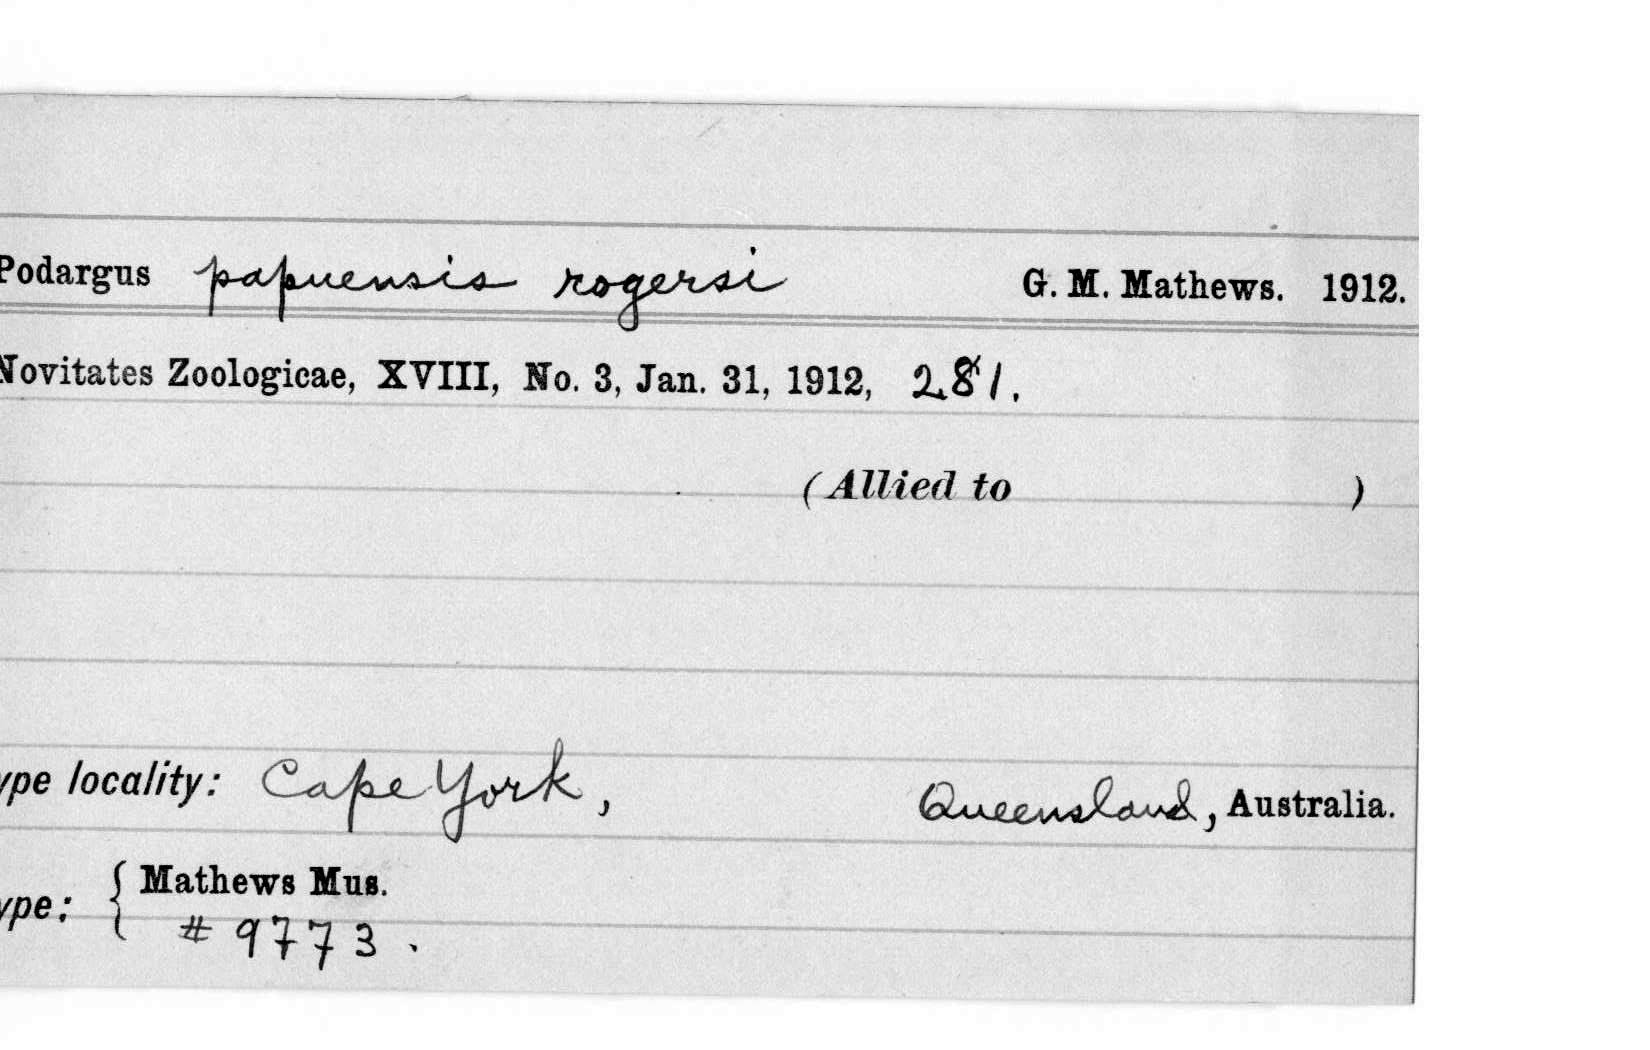 Podargus papuensis rogersi G. M. Mathews. 1912.
Novitates Zoologicae, XVIII, No. 3, Jan. 31, 1912, 281.
(Allied to )
ype locality: Cape York, Queensland, Australia.
ype: { Mathews Mus.
# 9773.